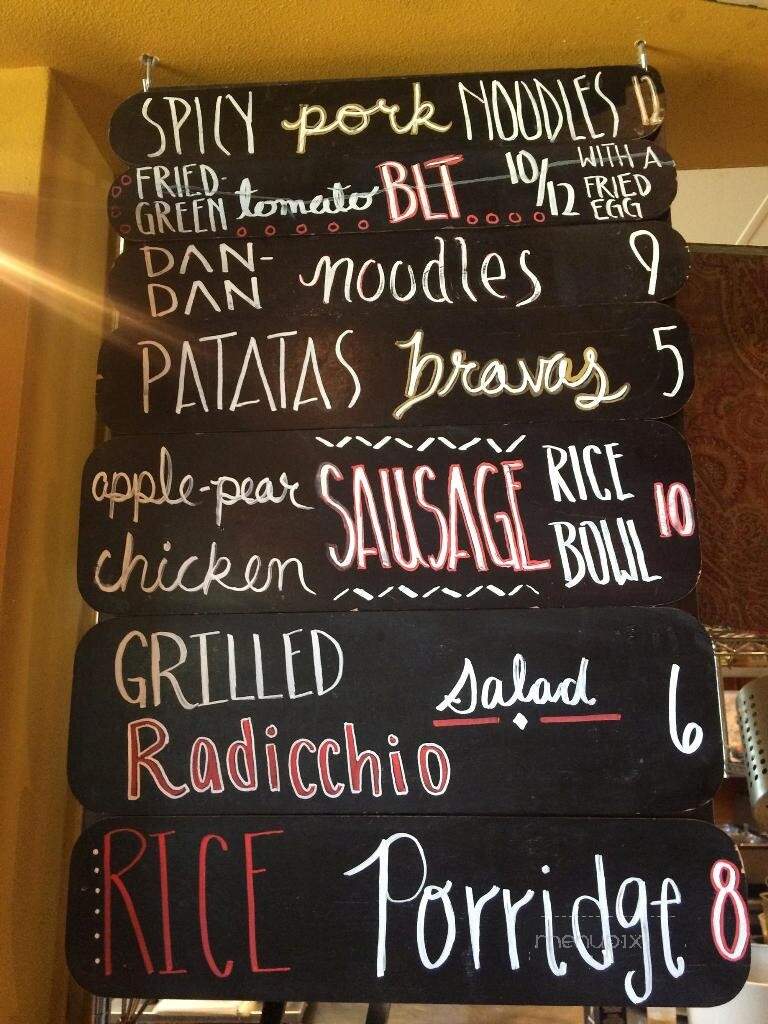 SPICY pork NOODLES 12
FRIED-GREEN tomato BLT 10/12 WITH A FRIED EGG
DAN-DAN noodles 9
PATATAS bravas 5
apple-pear chicken SAUSAGE RICE BOWL 10
GRILLED Radicchio salad 6
RICE Porridge 8
menupix